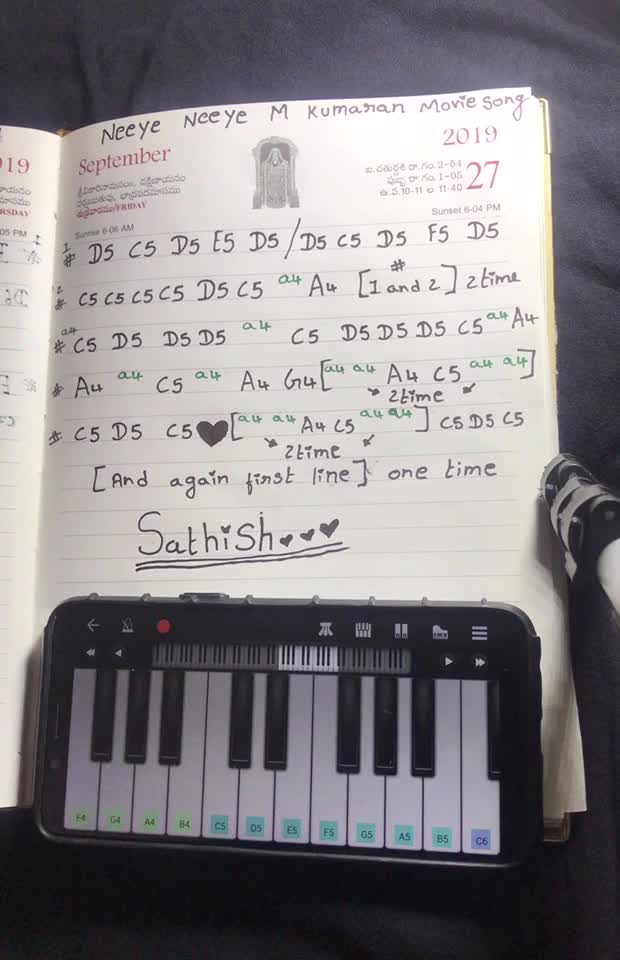 Neeye Neeye M Kumaran Movie Song
September
2019
27
శ్రీవికారినామసం॥, దక్షిణాయనం
వర్షఋతువు, భాద్రపదమాసము
శుక్రవారము/FRIDAY
ఉ.వ.10-11 ల 11-40
Sunrise 6-06 AM
Sunset 6-04 PM
1
# D5 C5 D5 E5 D5 / D5 C5 D5 F5 D5
2
# C5 C5 C5 C5 D5 C5 a4 A4 [1 # and 2] 2time
# a4 C5 D5 D5 D5 a4 C5 D5 D5 D5 C5 a4 A4
# A4 a4 C5 a4 A4 G4 [a4 a4 A4 C5 a4 a4]
2time
# C5 D5 C5 🖤 [a4 a4 A4 C5 a4 a4] C5 D5 C5
2time
[And again first line] one time
Sathish...
F4 G4 A4 B4 C5 D5 E5 F5 G5 A5 B5 C6